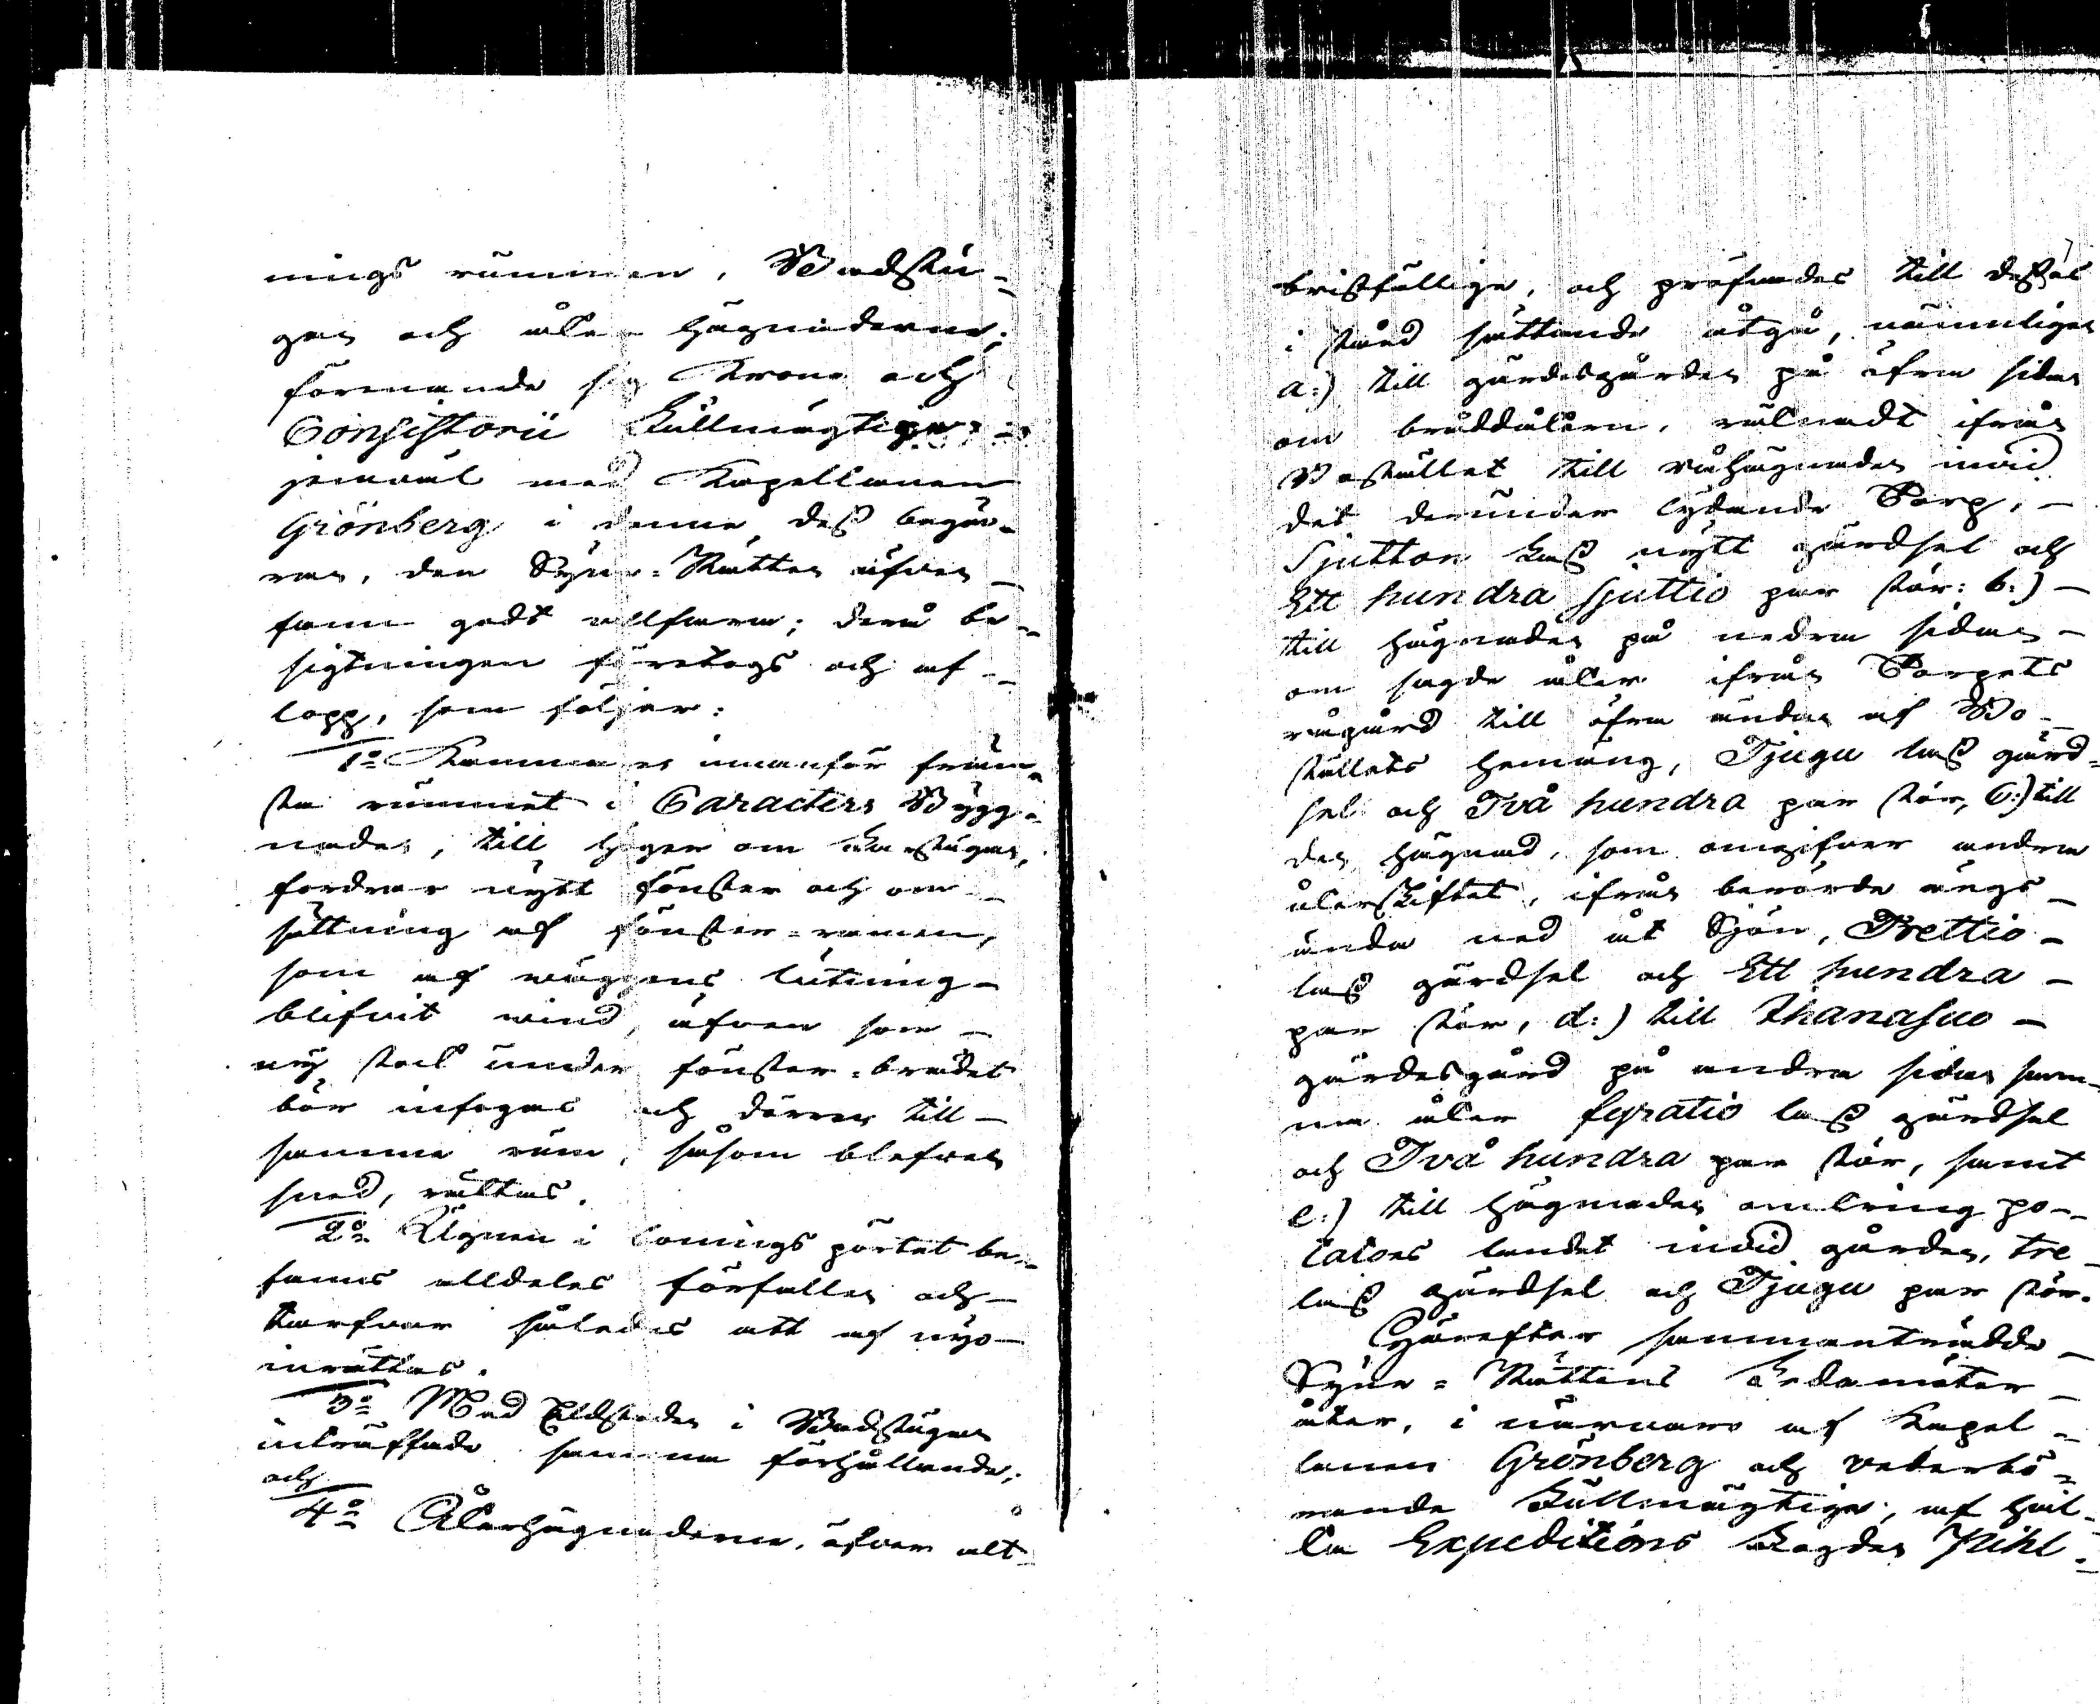 nings rummen, Badstu-
gan och åker hägnaderne;
förenande sig Krono och
Consistorii Fullmägtige
jemväl med Kapellanen
Grönberg i denne dess begä-
ran, den Syne-Rätten äfven
fann godt villfara; derå be-
sigtningen företogs och af-
lopp, som följer:
1:o Kammaren innanför främ-
sta rummet i Caracters Bygg-
naden, till höger om farstugan,
fordrar nytt fönster och om-
sättning af fönster-ramen,
som af väggens lutning
blifvit wind, äfven som
ny stock under fönster-brädet
bör infogas och dörren till
samma rum, såsom blefven
sned, rättas.
2:o Ugnen i bonings pörtet be-
fanns alldeles förfallen och
tarfvar således att af nyo
inrättas.
3:o Med Eldstaden i Badstugan
inträffade samma förhållande;
och
4:o Åkerhägnaderne, äfven alt
bristfällige, och pröfvades till dess
i stånd sättande åtgå, nämnligen
a:) till gärdesgården på öfra sidan
om bråddåkern, räknadt ifrån
Bostället till råhägnaden invid
det derunder lydande Torp,
Sjutton lass nytt gärdsel och
Ett hundra sjuttio par stör: b:)
till hägnaden på nedra sidan
om sagde åker ifrån Torpets
rågård till öfra ändan af Bo-
ställets hemäng, Tjugu lass gärd-
sel och Två hundra par stör, C:) till
den hägnad, som omgifver andra
åkerskiftet, ifrån berörde ängs
ända ned åt Sjön, Trettio
lass gärdsel och Ett hundra
par stör, d:) till Ihanasuo
gärdesgård på andra sidan sam-
ma åker fyratio lass gärdsel
och Två hundra par stör, samt
e:) till hägnaden omkring po-
tatoes landet invid gården, tre
lass gärdsel och Tjugu par stör.
Härefter sammanträdde
Syne-Rättens Ledamöter
åter, i närvaro af Kapel-
lanen Grönberg och vederbö-
rande Fullmägtige, af hvil-
ka Expeditions Fogden Pihl-